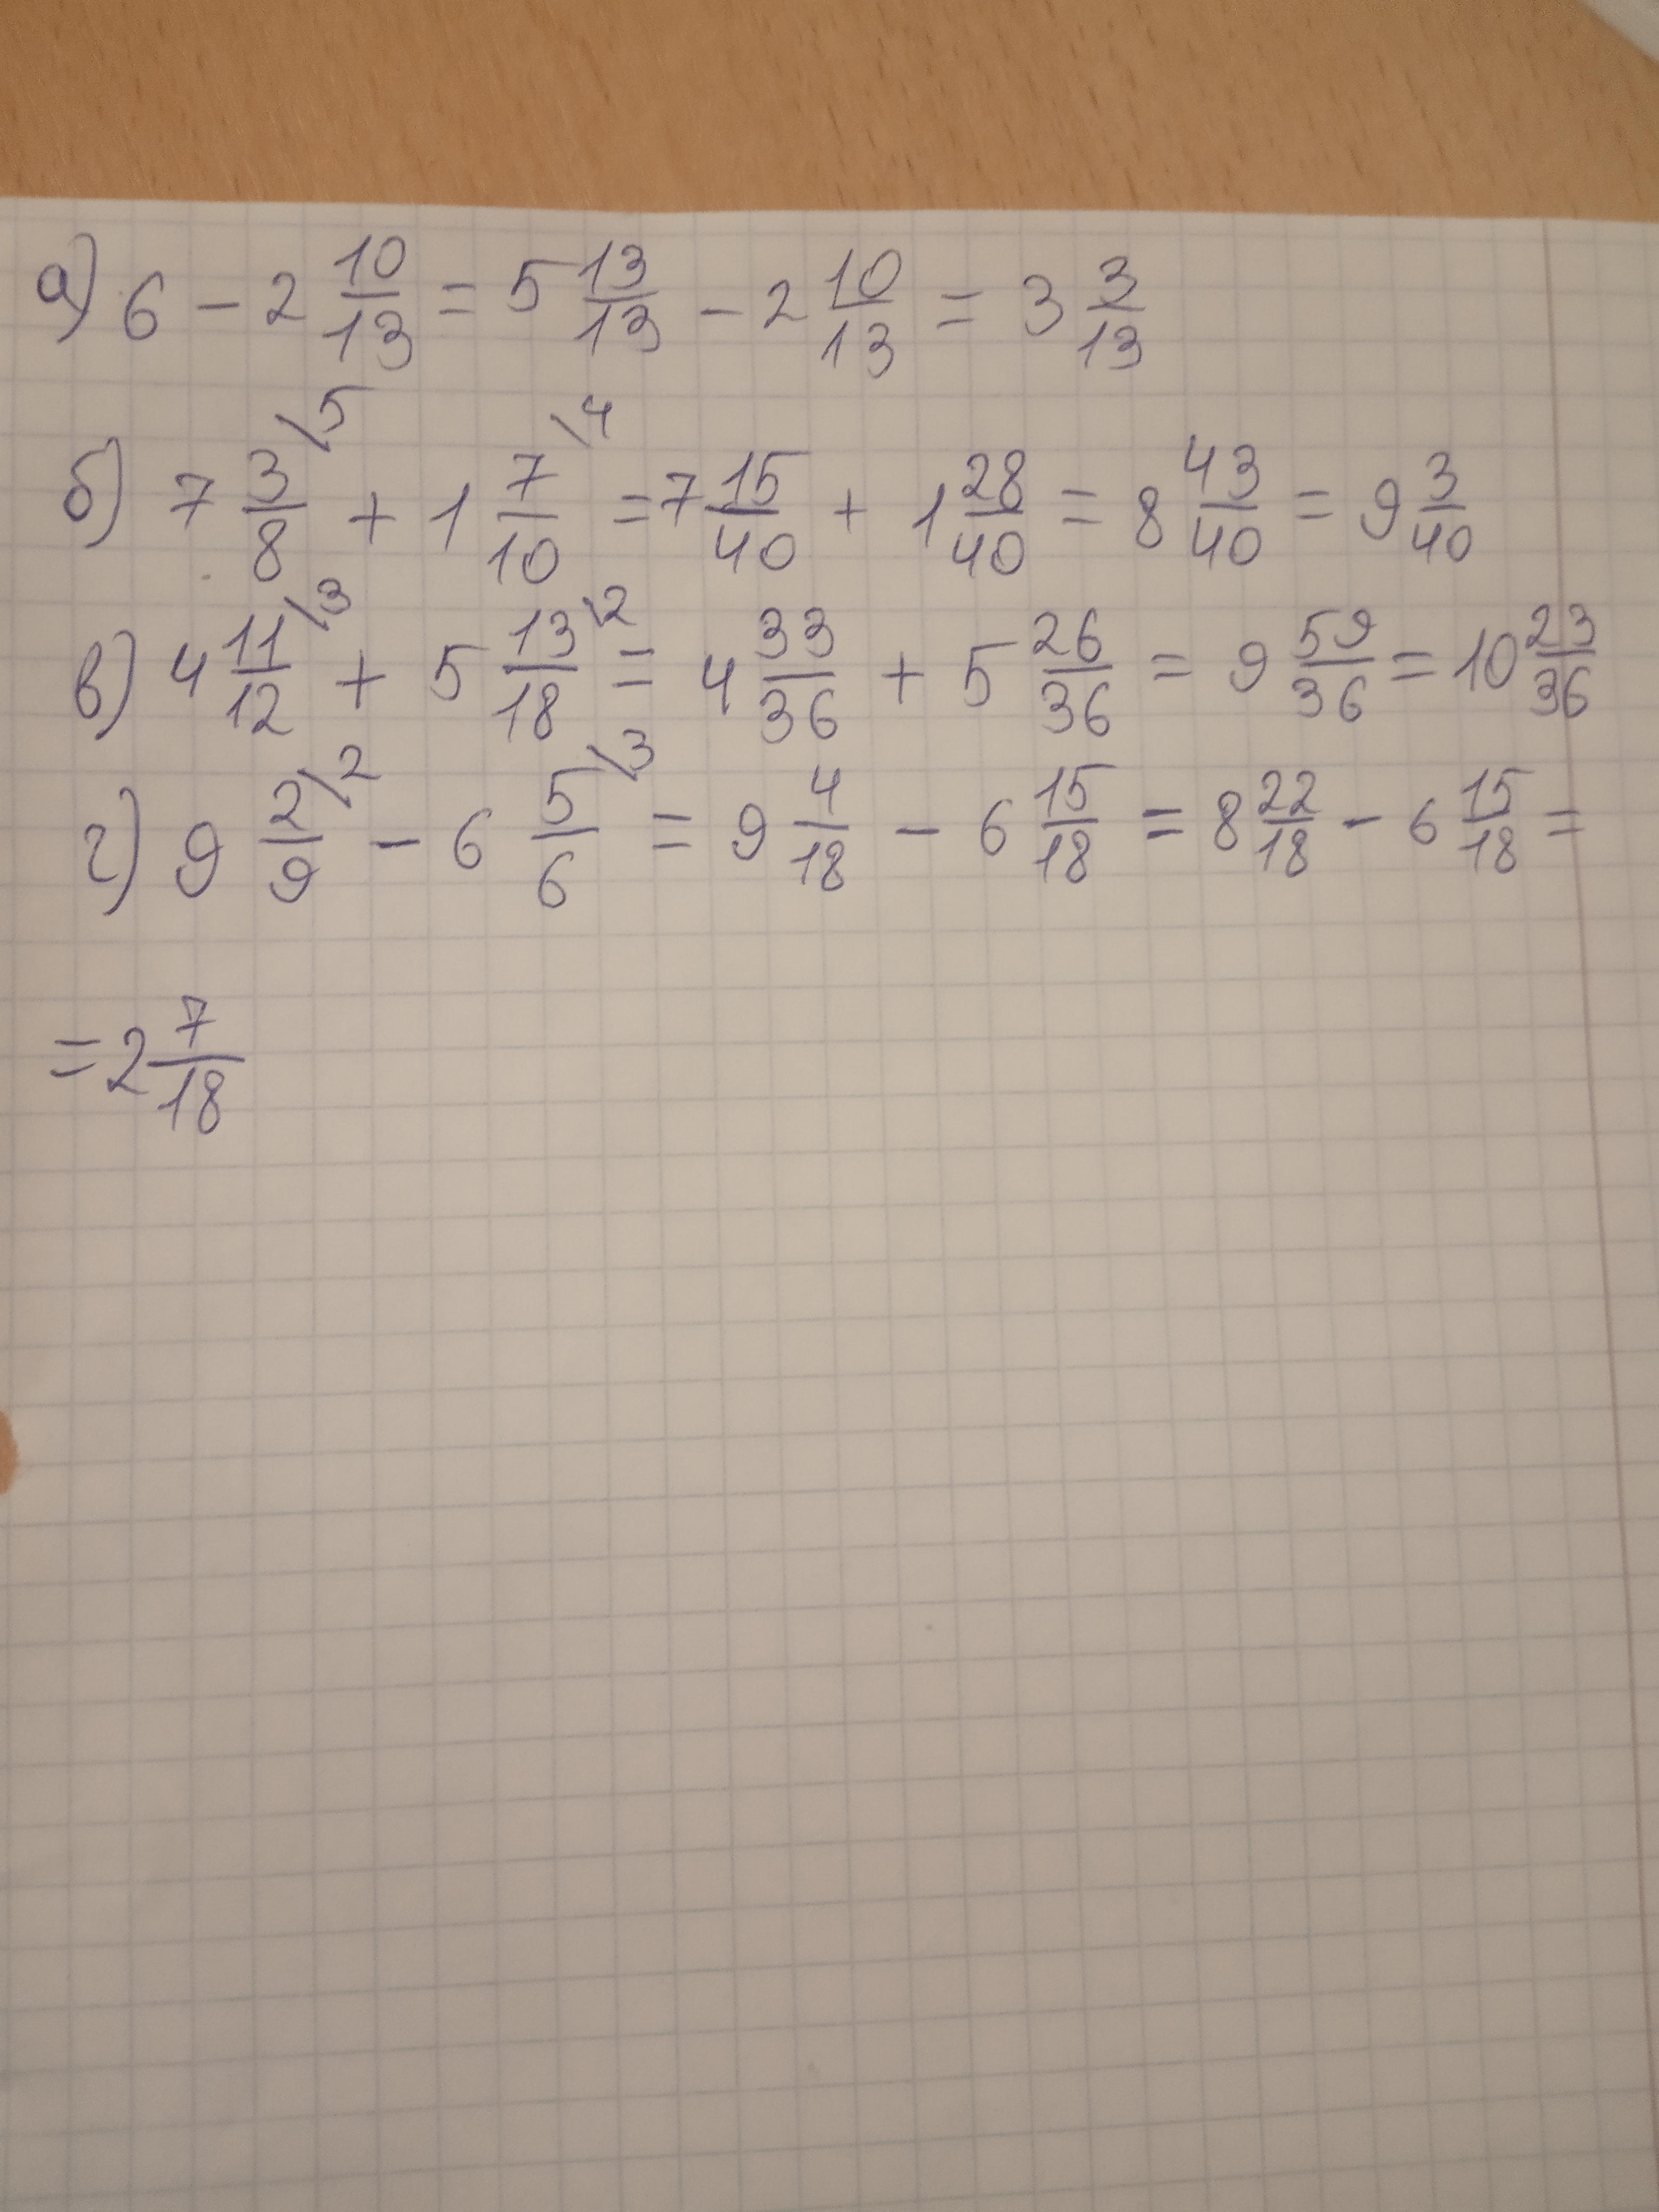 а) 6 - 2 10/13 = 5 13/13 - 2 10/13 = 3 3/13
б) 7 3/8 \5 + 1 7/10 \4 = 7 15/40 + 1 28/40 = 8 43/40 = 9 3/40
в) 4 11/12 \3 + 5 13/18 \2 = 4 33/36 + 5 26/36 = 9 59/36 = 10 23/36
г) 9 2/9 \2 - 6 5/6 \3 = 9 4/18 - 6 15/18 = 8 22/18 - 6 15/18 =
= 2 7/18